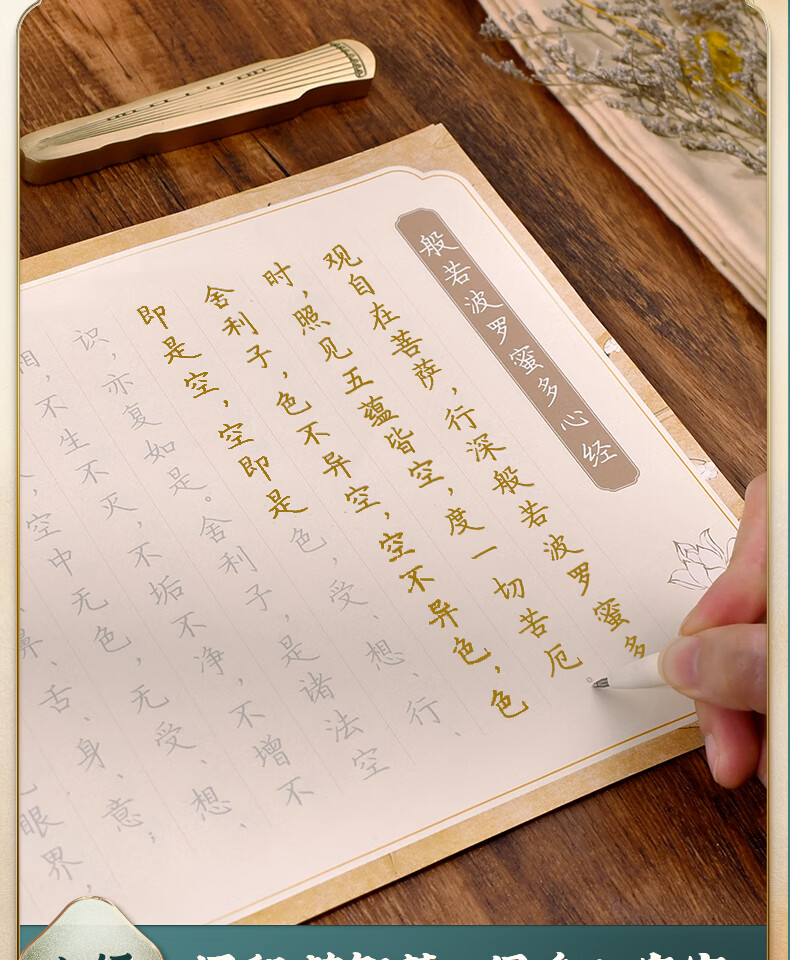 般若波罗蜜多心经
观自在菩萨，行深般若波罗蜜多
时，照见五蕴皆空，度一切苦厄。
舍利子，色不异空，空不异色，色
即是空，空即是色，受、想、行、
识，亦复如是。舍利子，是诸法空
相，不生不灭，不垢不净，不增不
，空中无色，无受、想、
鼻、舌、身、意；
眼界，